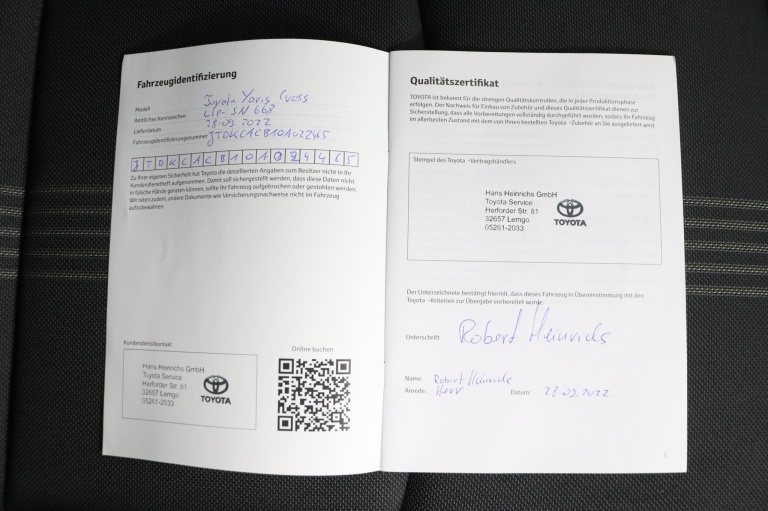 Fahrzeugidentifizierung
Modell Toyota Yaris Cross
Amtliches Kennzeichen LIP-SN 668
Lieferdatum 28.09.2022
Fahrzeugidentifizierungsnummer
Zu Ihrer eigenen Sicherheit hat Toyota die detaillierten Angaben zum Besitzer nicht in Ihr
Kundendienstheft aufgenommen. Damit soll sichergestellt werden, dass diese Daten nicht
in falsche Hände geraten können, sollte Ihr Fahrzeug aufgebrochen oder gestohlen werden.
Wir raten zudem, andere Dokumente wie Versicherungsnachweise nicht im Fahrzeug
aufzubewahren.
Kundendienstkontakt
Hans Heinrichs GmbH
Toyota Service
Herforder Str. 81
32657 Lemgo
05261-2033
TOYOTA
Online buchen
Qualitätszertifikat
TOYOTA ist bekannt für die strengen Qualitätskontrollen, die in jeder Produktionsphase
erfolgen. Der Nachweis für Einbau von Zubehör und dieses Qualitätszertifikat dienen zur
Sicherstellung, dass alle Vorbereitungen vollständig durchgeführt wurden, sodass Ihr Fahrzeug
im allerbesten Zustand mit dem von Ihnen bestellten Toyota -Zubehör an Sie ausgeliefert wird.
Stempel des Toyota -Vertragshändlers
Hans Heinrichs GmbH
Toyota Service
Herforder Str. 81
32657 Lemgo
05261-2033
TOYOTA
Der Unterzeichnete bestätigt hiermit, dass dieses Fahrzeug in Übereinstimmung mit den
Toyota -Kriterien zur Übergabe vorbereitet wurde.
Unterschrift Robert Heinrichs
Name: Robert Heinrichs
Anrede: Herr Datum: 28.09.2022